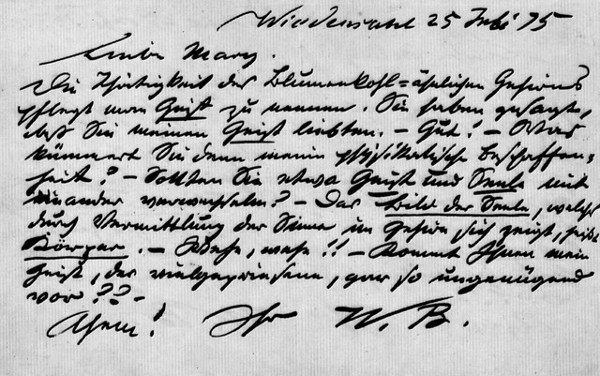 Wiedensahl 25 Juli 75
Liebe Mary.
Die Thätigkeit des Blumenkohl=ähnlichen Gehirns
pflegt man Geist zu nennen. Sie haben gesagt,
daß Sie meinen Geist liebten. – Gut! – Was
kümmert Sie denn meine physikalische Beschaffen-
heit? – Sollten Sie etwa Geist und Seele mit
einander verwechseln? – Das Bild der Seele, welches
durch Vermittlung der Sinne im Gehirn sich zeigt, heißt
Körper. – Wehe, wehe!! – Kommt Ihnen mein
Geist, der vielgepriesene, gar so ungenügend
vor??–
Ahem! Ihr W. B.